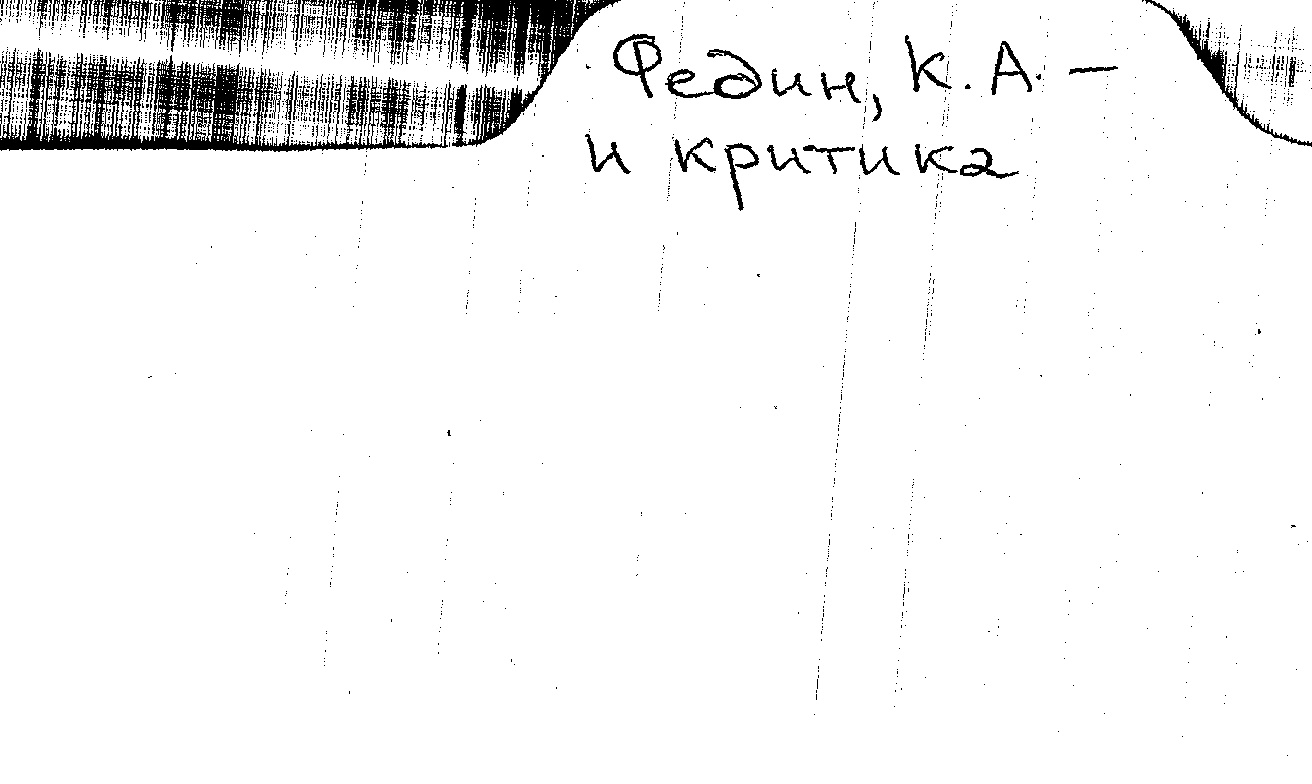 Федин, К. А. —
и критика